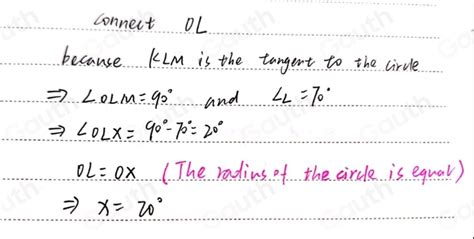 connect OL
because KLM is the tangent to the circle
⇒ ∠OLM = 90° and ∠L = 70°
⇒ ∠OLX = 90° - 70° = 20°
OL = OX (The radius of the circle is equal)
⇒ X = 20°